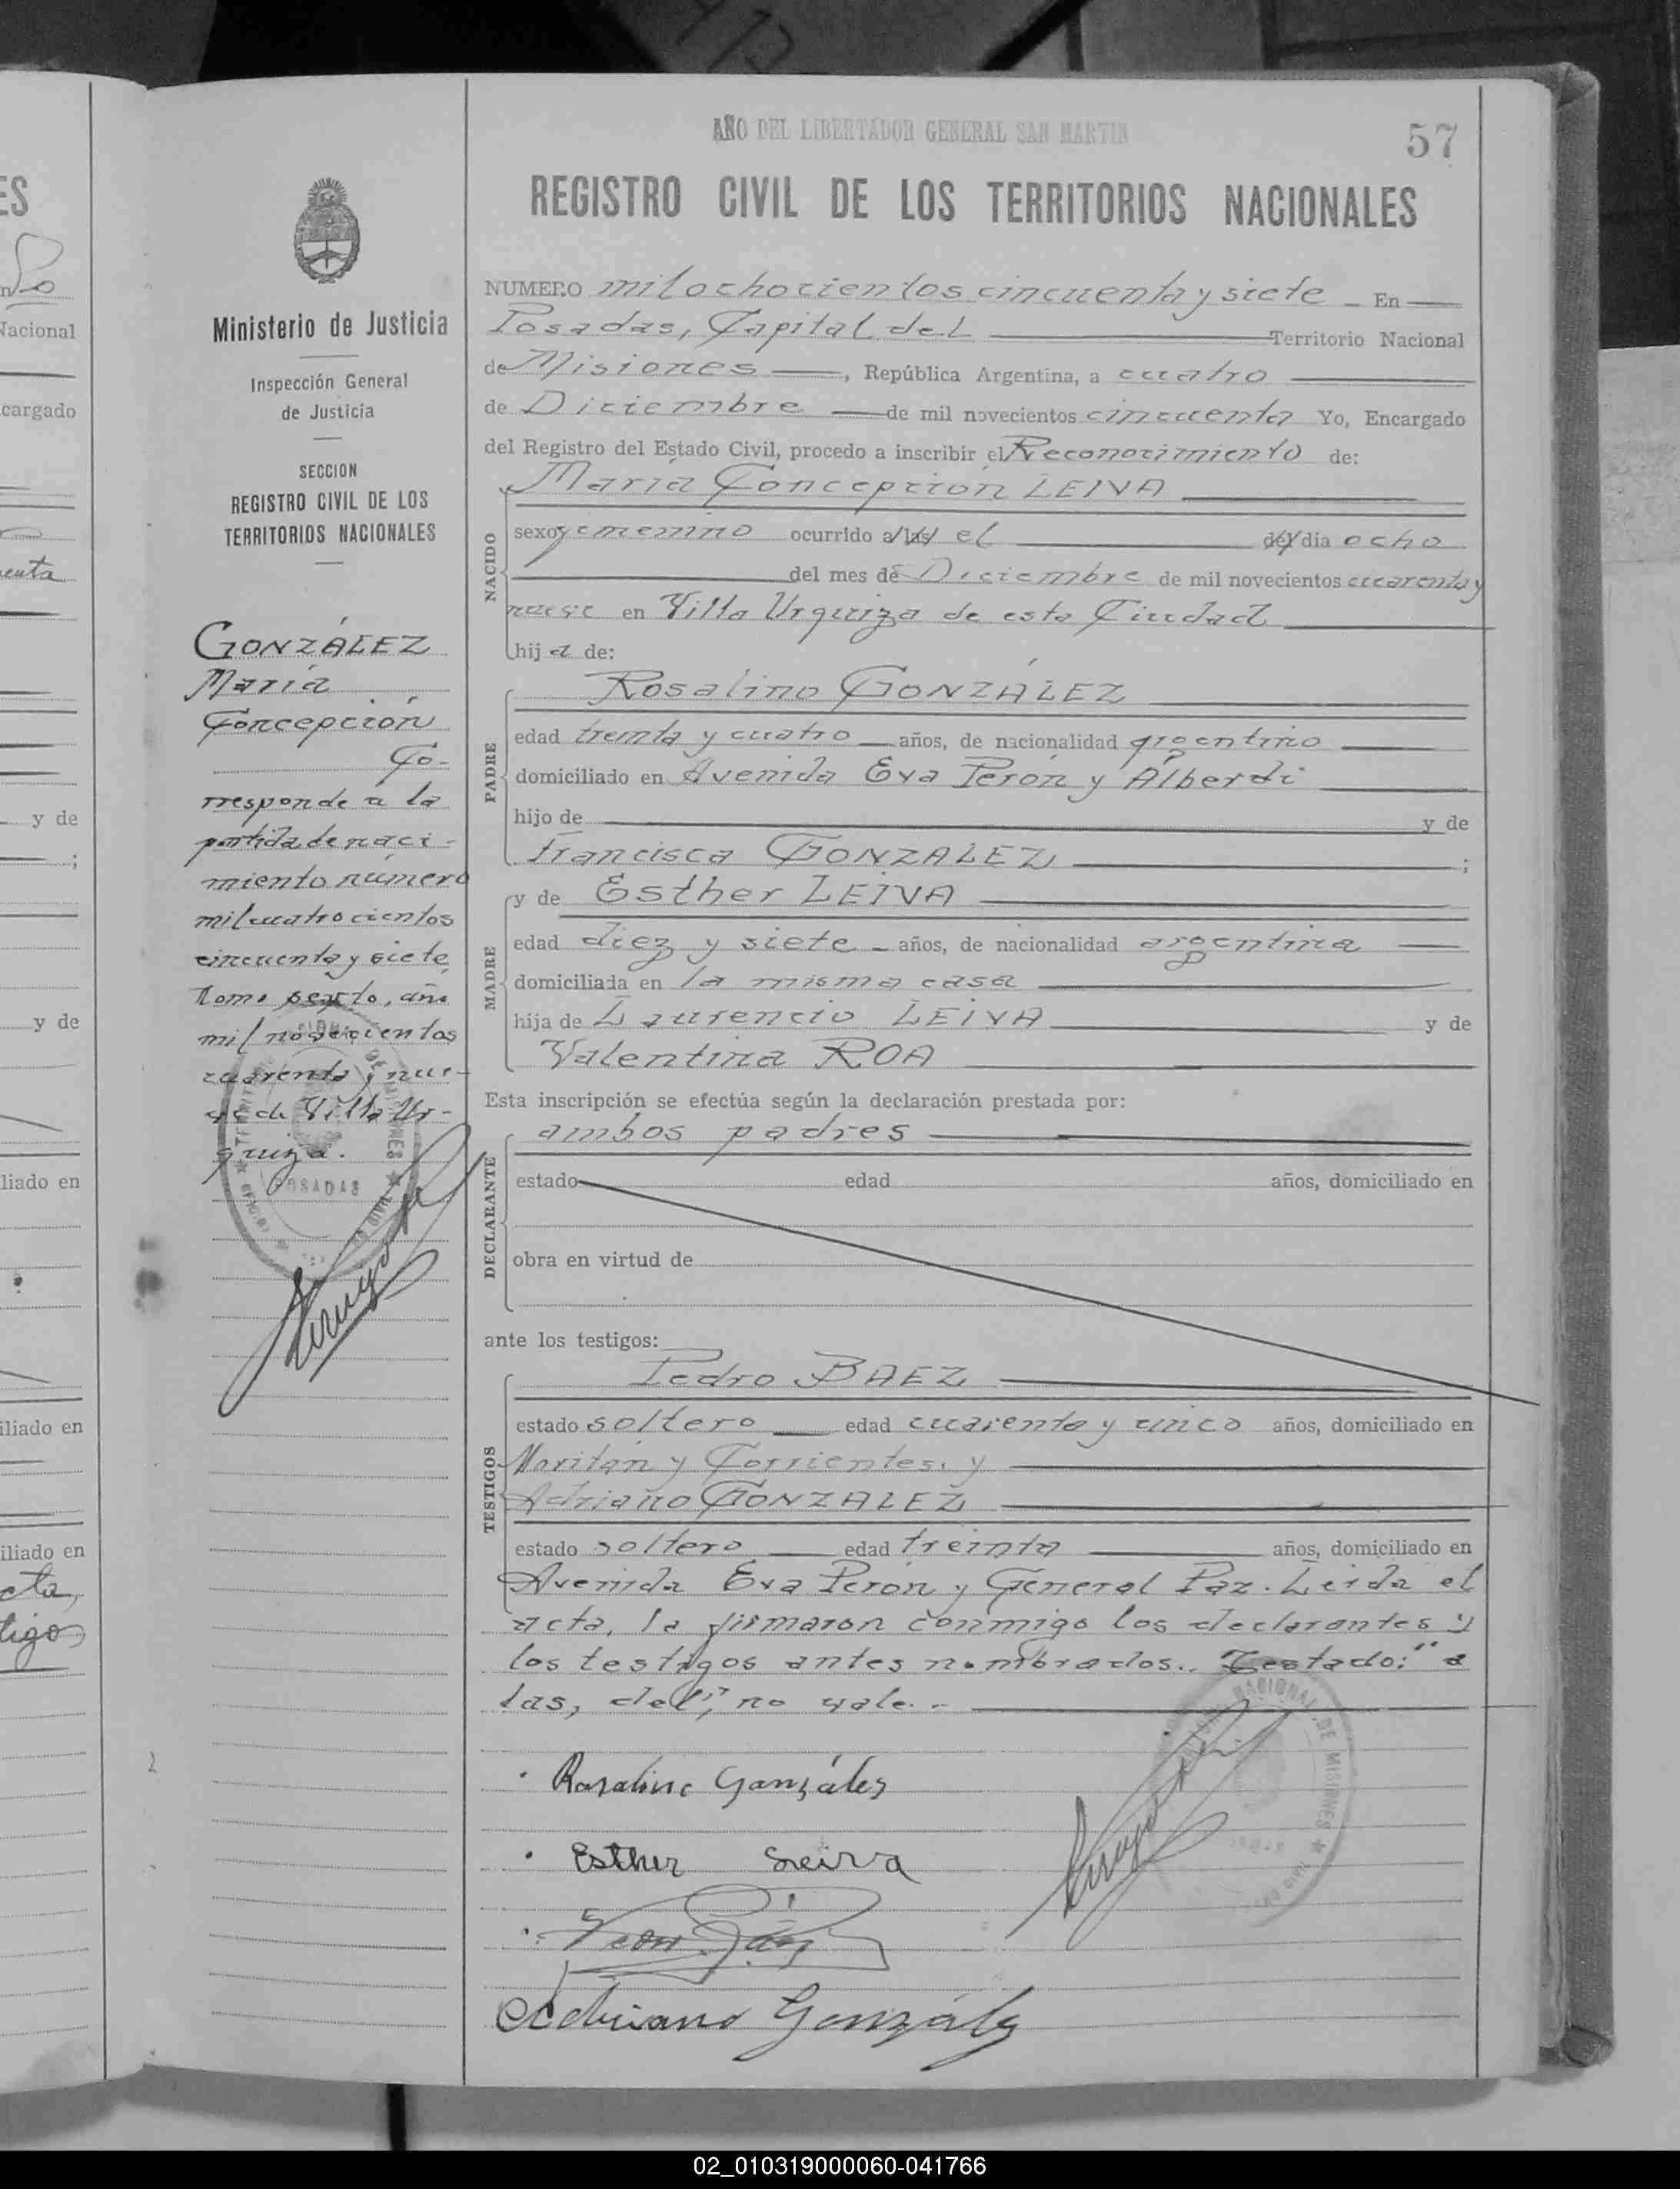 AÑO DEL LIBERTADOR GENERAL SAN MARTIN
57
REGISTRO CIVIL DE LOS TERRITORIOS NACIONALES
Ministerio de Justicia
Inspección General
de Justicia
SECCION
REGISTRO CIVIL DE LOS
TERRITORIOS NACIONALES
GONZÁLEZ
María
Concepción
Co-
rresponde a la
partida de naci-
miento número
mil cuatrocientos
cincuenta y siete,
tomo sexto, año
mil novecientos
cuarenta y nue-
ve de Villa Ur-
quiza.
POSADAS
NUMERO mil ochocientos cincuenta y siete - En
Posadas, Capital del Territorio Nacional
de Misiones, República Argentina, a cuatro
de Diciembre de mil novecientos cincuenta Yo, Encargado
del Registro del Estado Civil, procedo a inscribir el Reconocimiento de:
María Concepción LEIVA
NACIDO
sexo femenino ocurrido a las el del día ocho
del mes de Diciembre de mil novecientos cuarenta y
nueve en Villa Urquiza de esta Ciudad
hija de:
Rosalino GONZÁLEZ
PADRE
edad treinta y cuatro años, de nacionalidad argentino
domiciliado en Avenida Eva Perón y Alberdi
hijo de y de
Francisca GONZALEZ ;
y de Esther LEIVA
MADRE
edad diez y siete - años, de nacionalidad argentina
domiciliada en la misma casa
hija de Laurencio LEIVA y de
Valentina ROA
Esta inscripción se efectúa según la declaración prestada por:
ambos padres
DECLARANTE
estado edad años, domiciliado en
obra en virtud de
ante los testigos:
Pedro BAEZ
TESTIGOS
estado soltero edad cuarenta y cinco años, domiciliado en
y Corrientes, y
Adriano GONZALEZ
estado soltero edad treinta años, domiciliado en
Avenida Eva Perón y General Paz. Leída el
acta, la firmaron conmigo los declarantes y
los testigos antes nombrados.. Testado: "a
las, del", no vale. -
Rosalino González
Esther Leiva
Adriano González
02_010319000060-041766